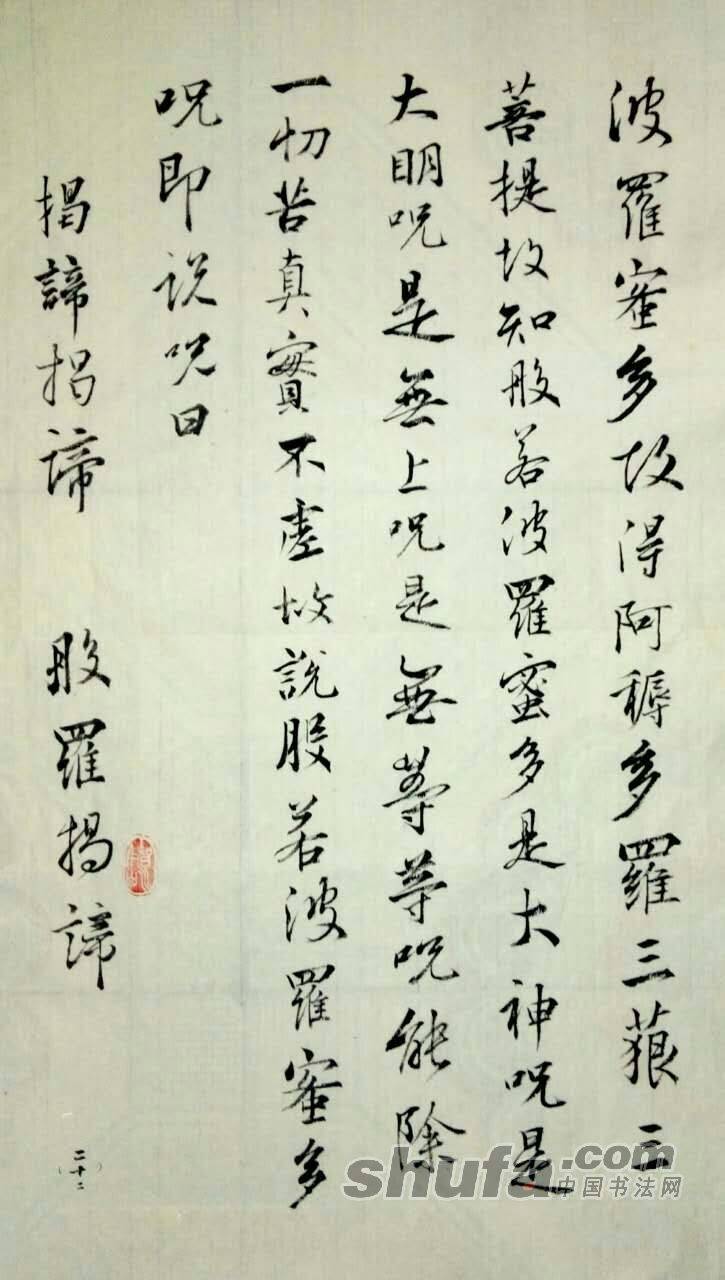 波羅蜜多故得阿耨多羅三藐三
菩提故知般若波羅蜜多是大神呪是
大明呪是無上呪是無等等呪能除
一切苦真實不虛故說般若波羅蜜多
呪即説呪曰
揭諦揭諦 般羅揭諦
(二十二)
shufa.com
中国书法网